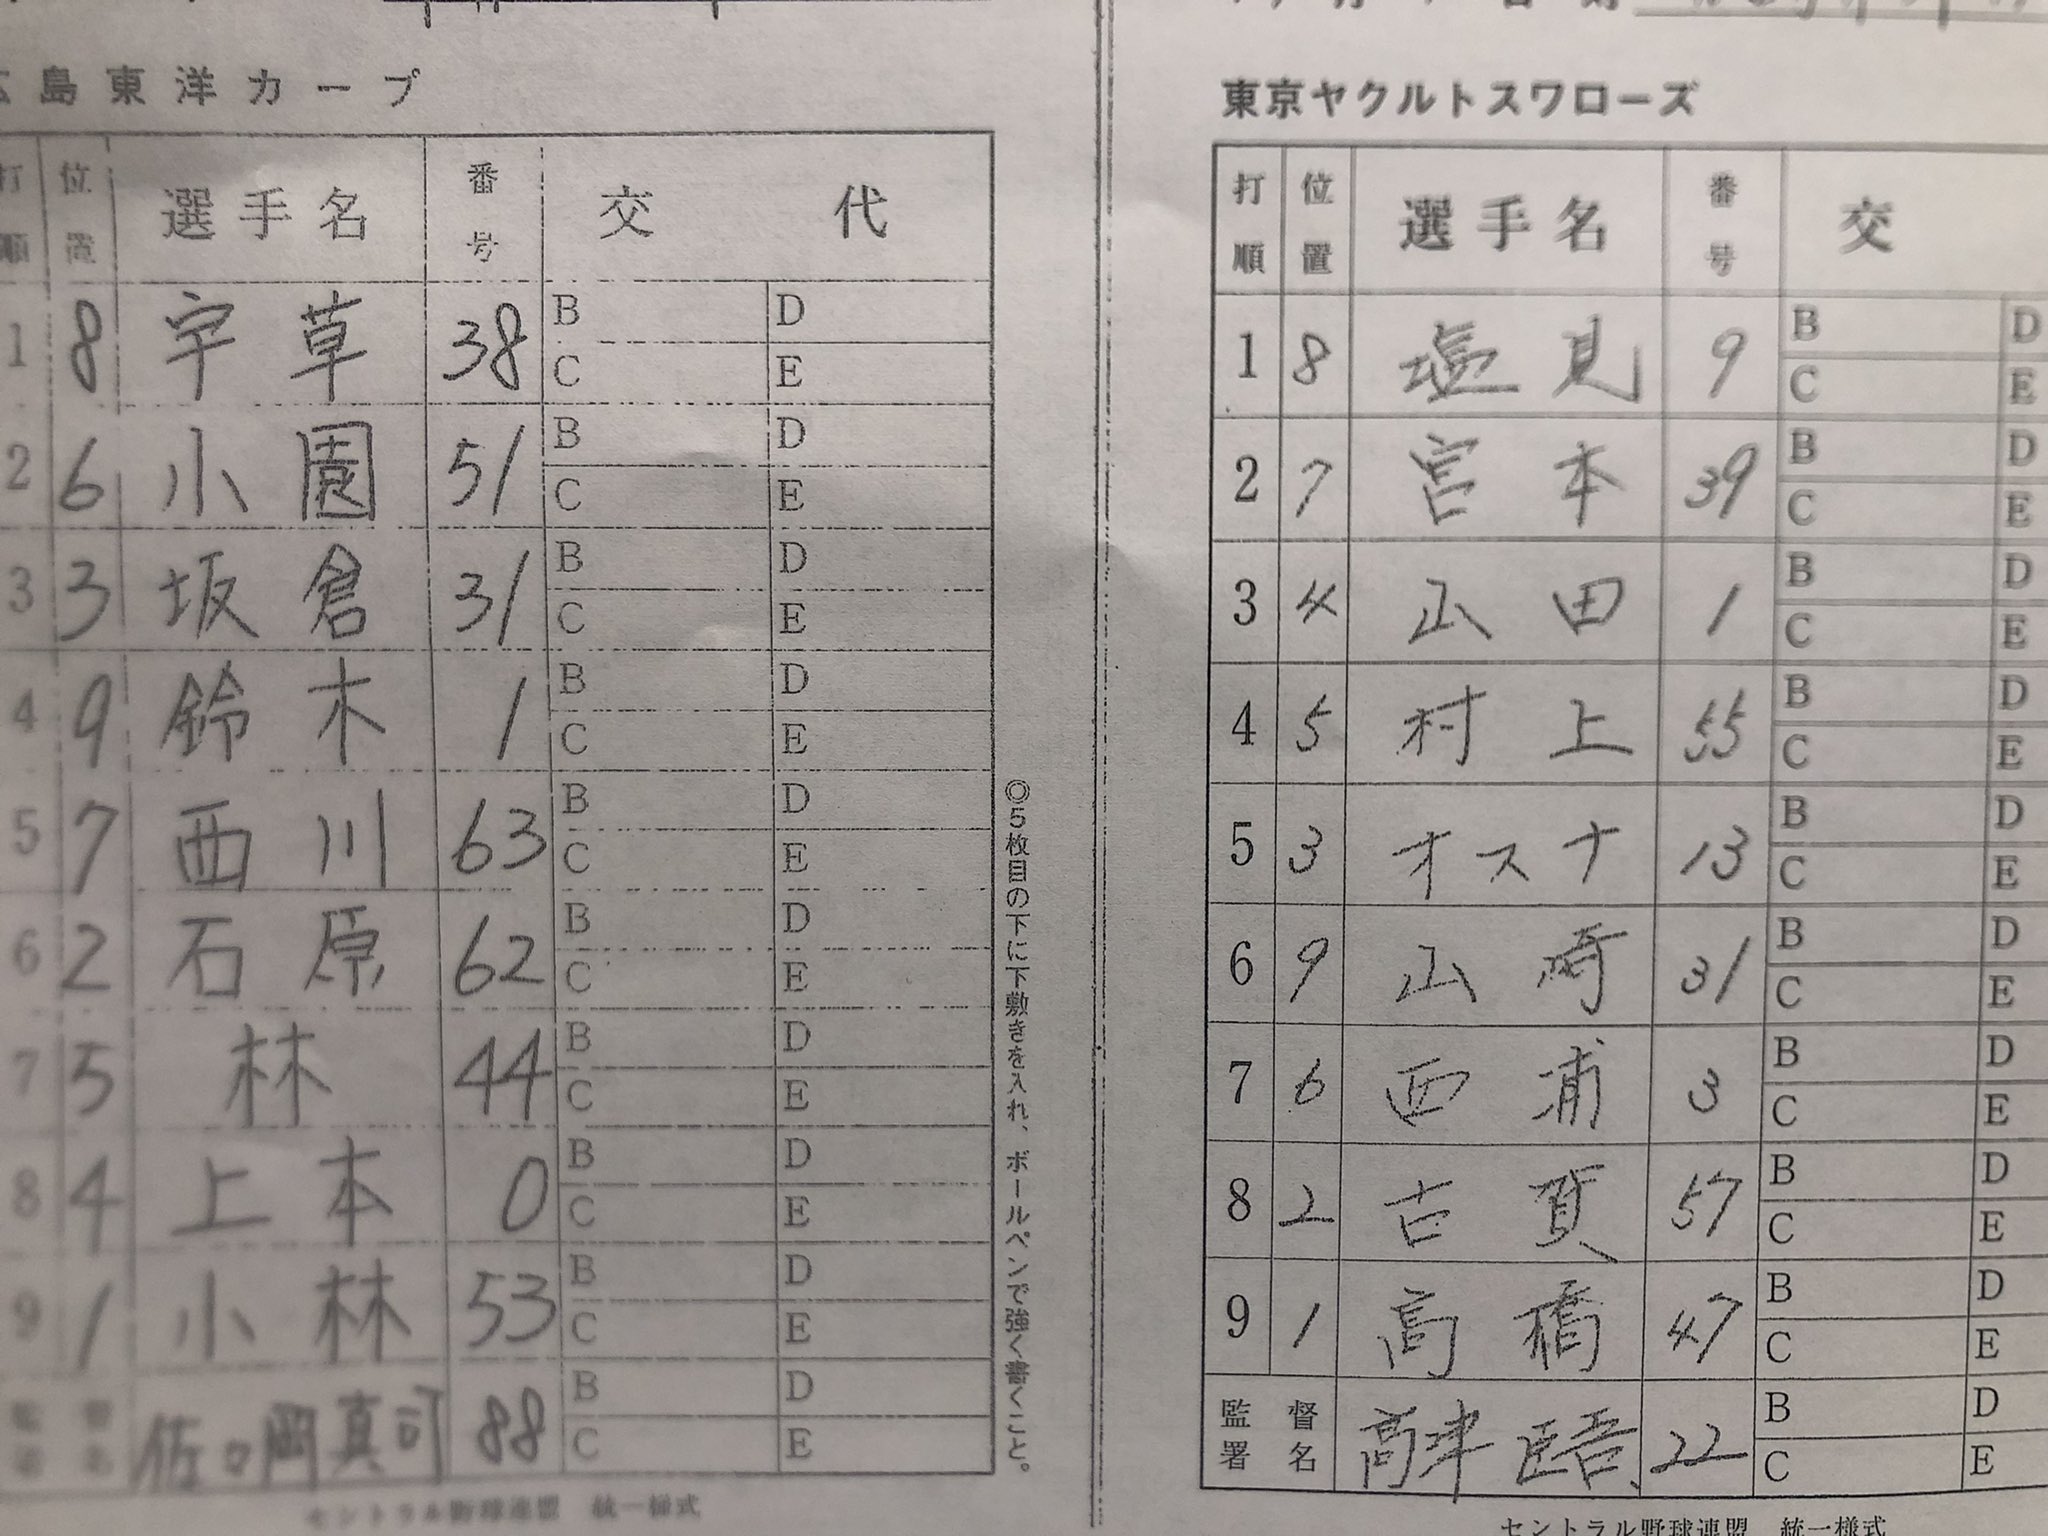 島東洋カープ
打順 位置 選手名 番号 交代
1 8 宇草 38 B D
C E
2 6 小園 51 B D
C E
3 3 坂倉 31 B D
C E
4 9 鈴木 1 B D
C E
5 7 西川 63 B D
C E
6 2 石原 62 B D
C E
7 5 林 44 B D
C E
8 4 上本 0 B D
C E
9 1 小林 53 B D
C E
監督署名 佐々岡真司 88 B D
C E
セントラル野球連盟 統一様式
◎5枚目の下に下敷きを入れ、ボールペンで強く書くこと。
東京ヤクルトスワローズ
打順 位置 選手名 番号 交
1 8 塩見 9 B D
C E
2 7 宮本 39 B D
C E
3 4 山田 1 B D
C E
4 5 村上 55 B D
C E
5 3 オスナ 13 B D
C E
6 9 山崎 31 B D
C E
7 6 西浦 3 B D
C E
8 2 古賀 57 B D
C E
9 1 高橋 47 B D
C E
監督署名 高津臣吾 22 B D
C E
セントラル野球連盟 統一様式